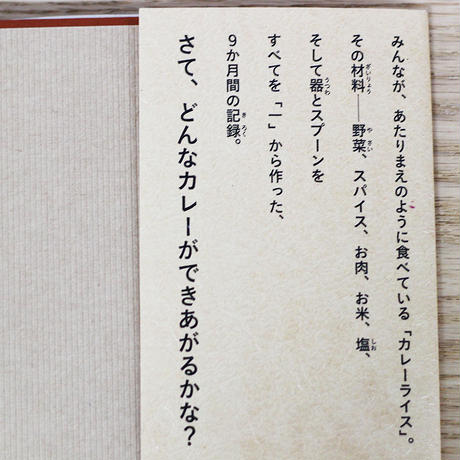 みんなが、あたりまえのように食べている「カレーライス」。
その材料――野菜、スパイス、お肉、お米、塩、
そして器とスプーンを
すべてを「一」から作った、
9か月間の記録。
さて、どんなカレーができあがるかな？
ざいりょう
やさい
しお
うつわ
きろく